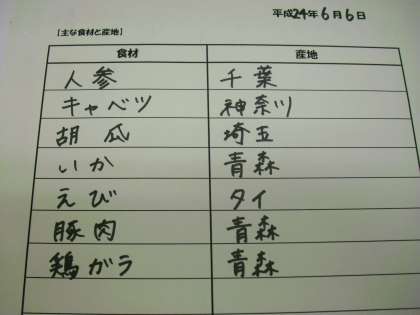 平成24年6月6日
【主な食材と産地】
食材 産地
人参 千葉
キャベツ 神奈川
胡瓜 埼玉
いか 青森
えび タイ
豚肉 青森
鶏ガラ 青森